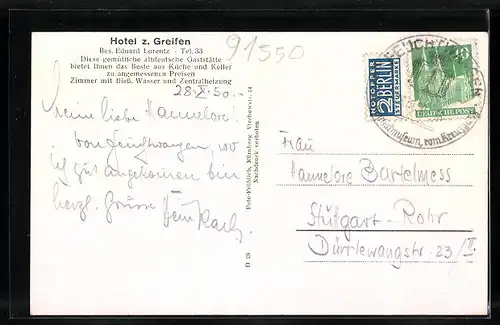 Hotel z. Greifen
Bes. Eduard Lorentz - Tel. 33
Diese gemütliche altdeutsche Gaststätte
bietet Ihnen das Beste aus Küche und Keller
zu angemessenen Preisen
Zimmer mit fließ. Wasser und Zentralheizung
91550
28.X.50.
Meine liebe Hannelore!
Von Feuchtwangen, wo
ich gut angekommen bin
herzl. Grüsse Dein Karl.
D 29
Foto-Fröhlich, Nürnberg
Nachdruck verboten
NOTOPFER
2 BERLIN
STEUERMARKE
DEUTSCHE POST
FEUCHT
Frau
Hannelore Bartelmess
Stuttgart-Rohr
Dürrlewangstr. 23/II.